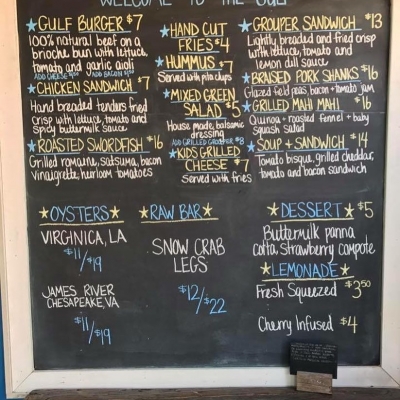 WELCOME TO THE GULF
GULF BURGER $7
100% natural beef on a
brioche bun with lettuce,
tomato and garlic aioli
ADD CHEESE ADD BACON
CHICKEN SANDWICH $7
Hand breaded tenders fried
crisp with lettuce, tomato and
spicy buttermilk sauce
ROASTED SWORDFISH $16
Grilled romaine, satsuma, bacon
vinaigrette, heirloom tomatoes
HAND CUT
FRIES $4
HUMMUS $7
Served with pita chips
MIXED GREEN
SALAD $5
House made, balsamic
dressing
ADD GRILLED GROUPER $8
KIDS GRILLED
CHEESE $7
Served with fries
GROUPER SANDWICH $13
Lightly breaded and fried crisp
with lettuce, tomato and
lemon dill sauce
BRAISED PORK SHANKS $16
Glazed field peas, bacon + tomato jam
GRILLED MAHI MAHI $16
Quinoa + roasted fennel + baby
squash salad
SOUP + SANDWICH $14
Tomato bisque, grilled cheddar,
tomato and bacon sandwich
OYSTERS
VIRGINICA, LA
$11/$19
JAMES RIVER
CHESAPEAKE, VA
$11/$19
RAW BAR
SNOW CRAB
LEGS
$12/$22
DESSERT $5
Buttermilk panna
cotta, strawberry compote
LEMONADE
Fresh Squeezed $3.50
Cherry Infused $4